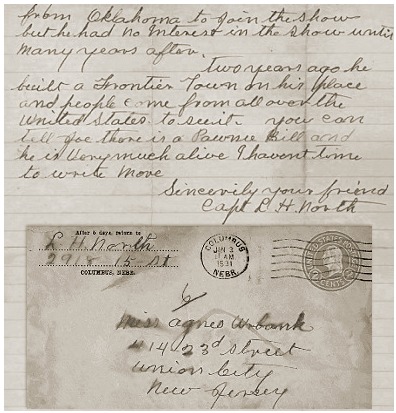 from Oklahoma to Join the show
but he had no Interest in the show until
many years after.
two years ago he
built a Frontier Town on his place
and people come from all over the
United States to see it. you can
tell Joe there is a Pawnie Bill and
he is Very much alive I havent time
to write More
Sincerily your friend
Capt L. H. North
After 5 days, return to
L. H. North
29 15 St
COLUMBUS, NEBR.
COLUMBUS
JAN 3
11 AM
1931
NEBR.
UNITED STATES
2 CENTS
Miss Agnes Urbank
414 23d Street
Union City
New Jersey